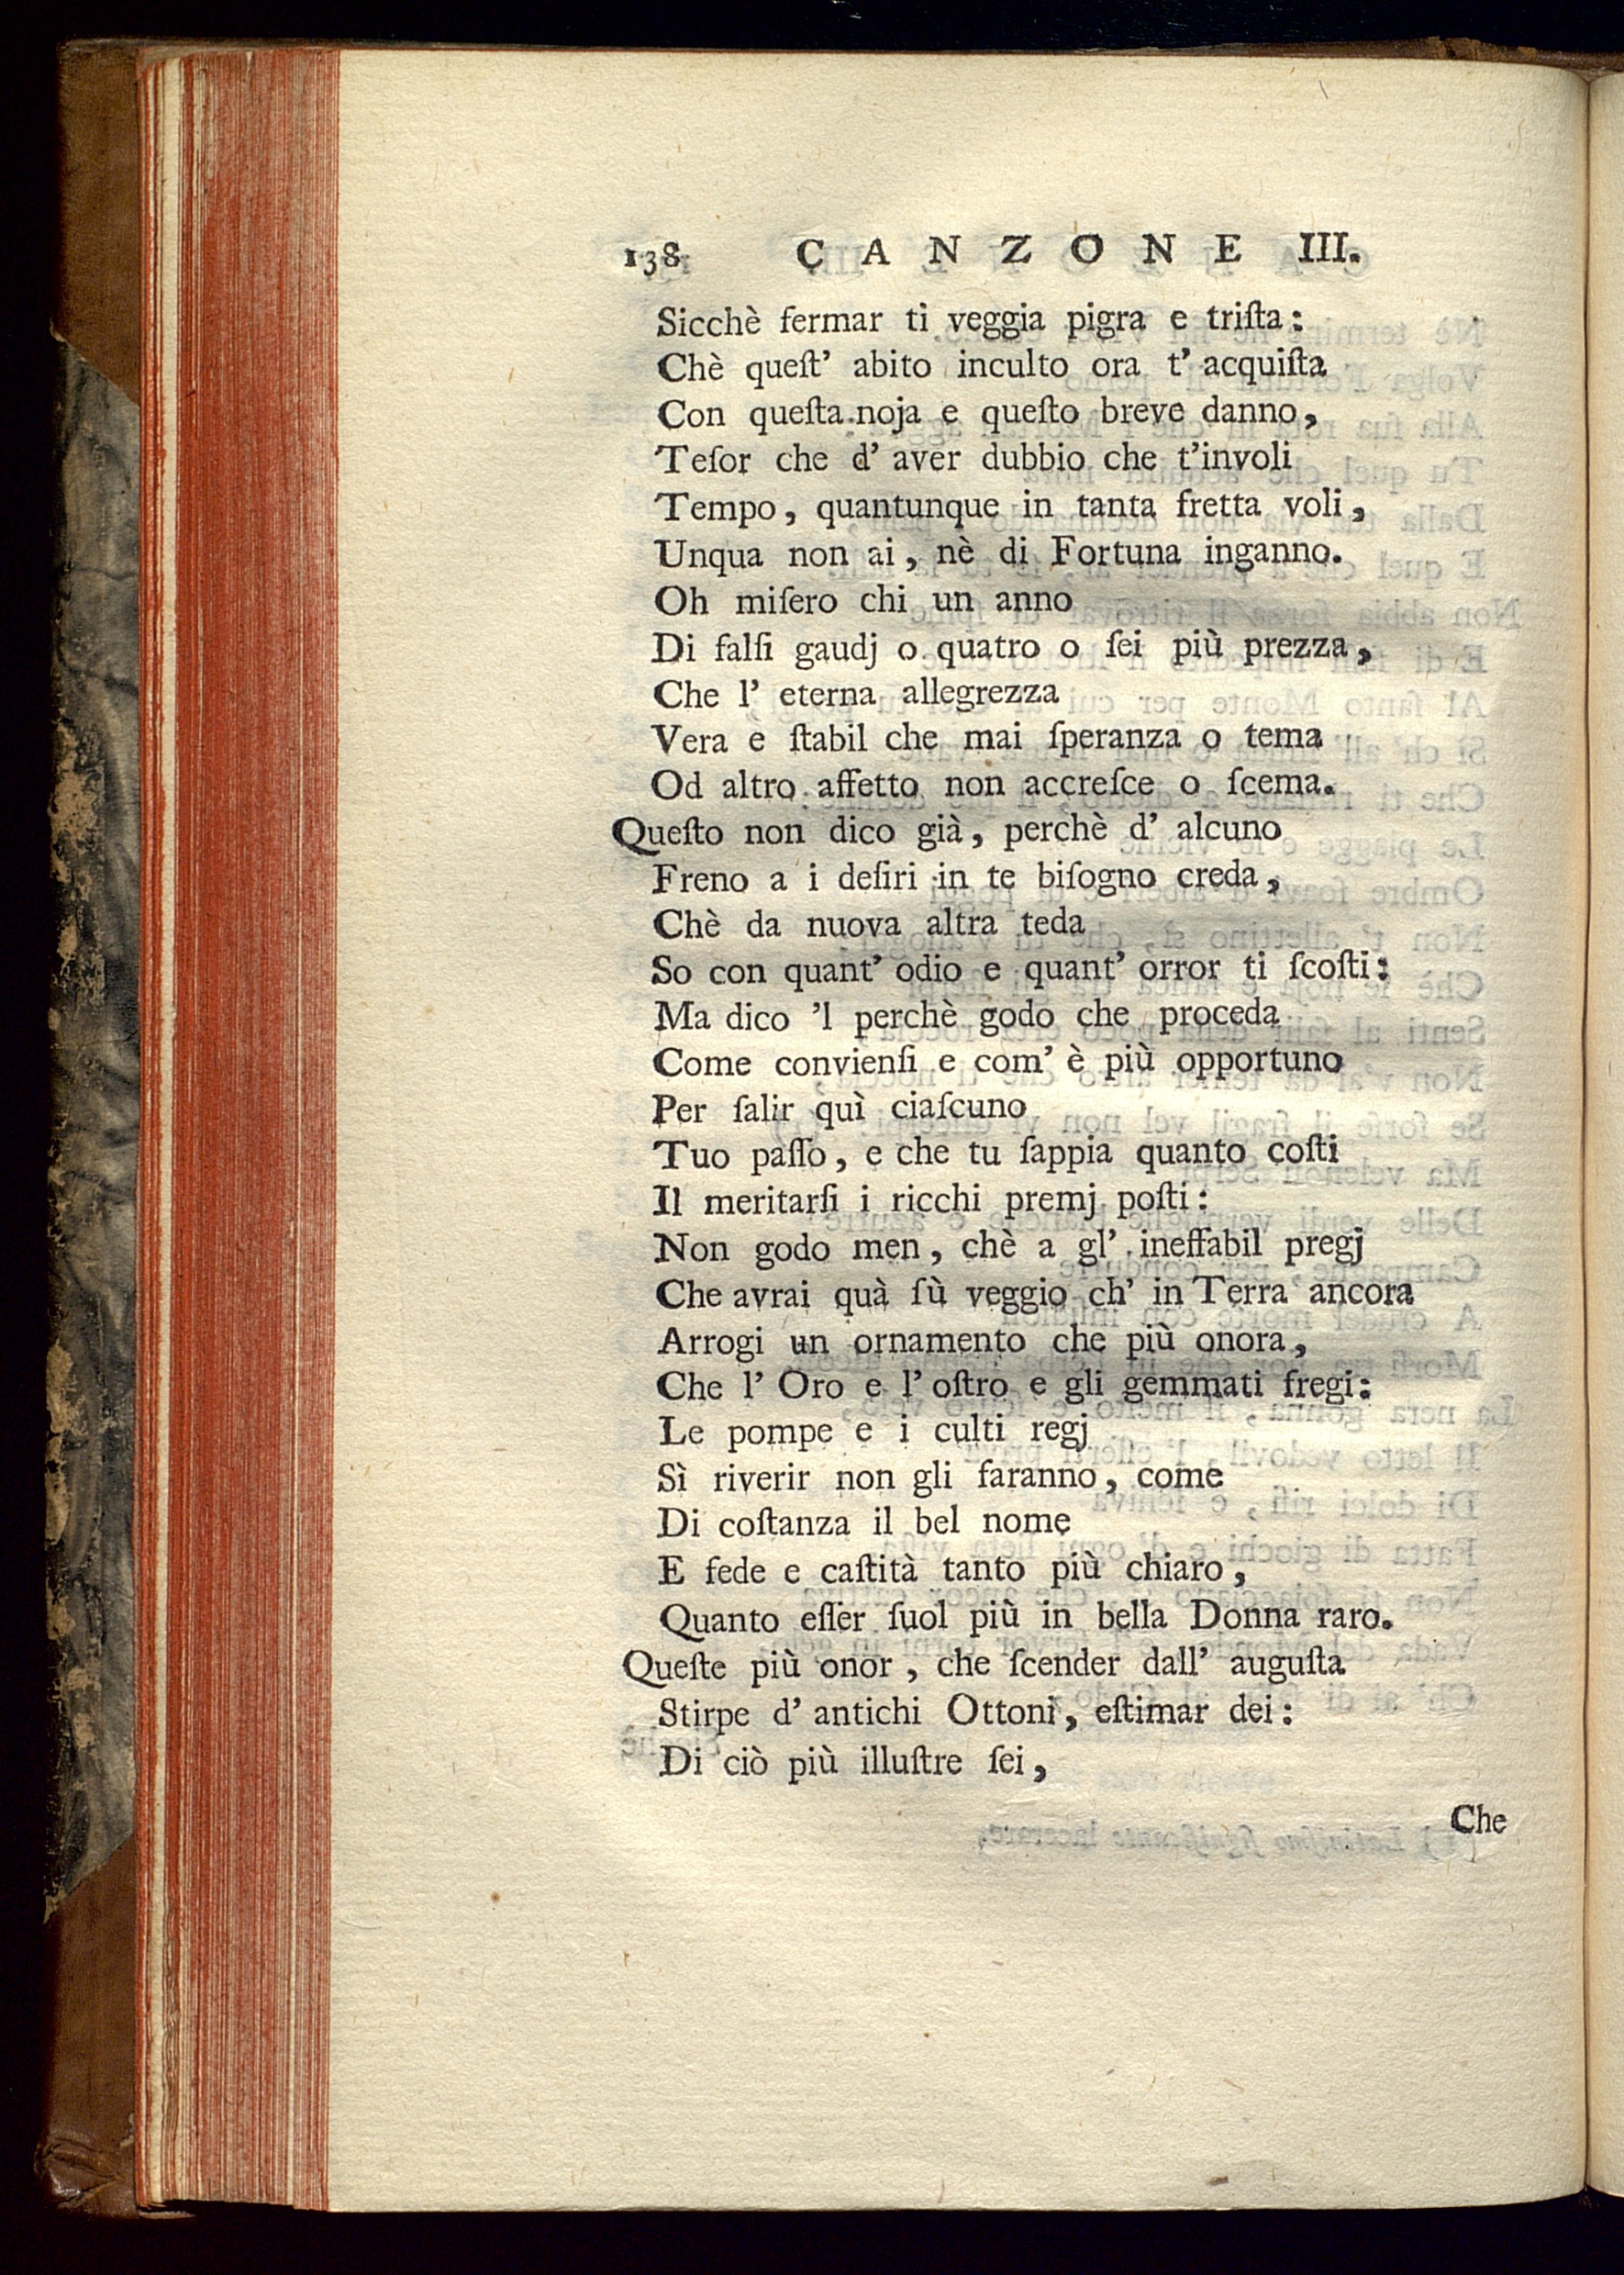 138 CANZONE III.
Sicchè fermar ti veggia pigra e triſta:
Chè queſt' abito inculto ora t' acquiſta
Con queſta noja e queſto breve danno,
Teſor che d' aver dubbio che t'involi
Tempo, quantunque in tanta fretta voli,
Unqua non ai, nè di Fortuna inganno.
Oh miſero chi un anno
Di falſi gaudj o quatro o ſei più prezza,
Che l' eterna allegrezza
Vera e ſtabil che mai ſperanza o tema
Od altro affetto non accreſce o ſcema.
Queſto non dico già, perchè d' alcuno
Freno a i deſiri in te biſogno creda,
Chè da nuova altra teda
So con quant' odio e quant' orror ti ſcoſti:
Ma dico 'l perchè godo che proceda
Come convienſi e com' è più opportuno
Per ſalir quì ciaſcuno
Tuo paſſo, e che tu ſappia quanto coſti
Il meritarſi i ricchi premj poſti:
Non godo men, chè a gl' ineffabil pregj
Che avrai quà ſù veggio ch' in Terra ancora
Arrogi un ornamento che più onora,
Che l' Oro e l' oſtro e gli gemmati fregi:
Le pompe e i culti regj
Sì riverir non gli faranno, come
Di coſtanza il bel nome
E fede e caſtità tanto più chiaro,
Quanto eſſer ſuol più in bella Donna raro.
Queſte più onor, che ſcender dall' auguſta
Stirpe d' antichi Ottoni, eſtimar dei:
Di ciò più illuſtre ſei,
Che